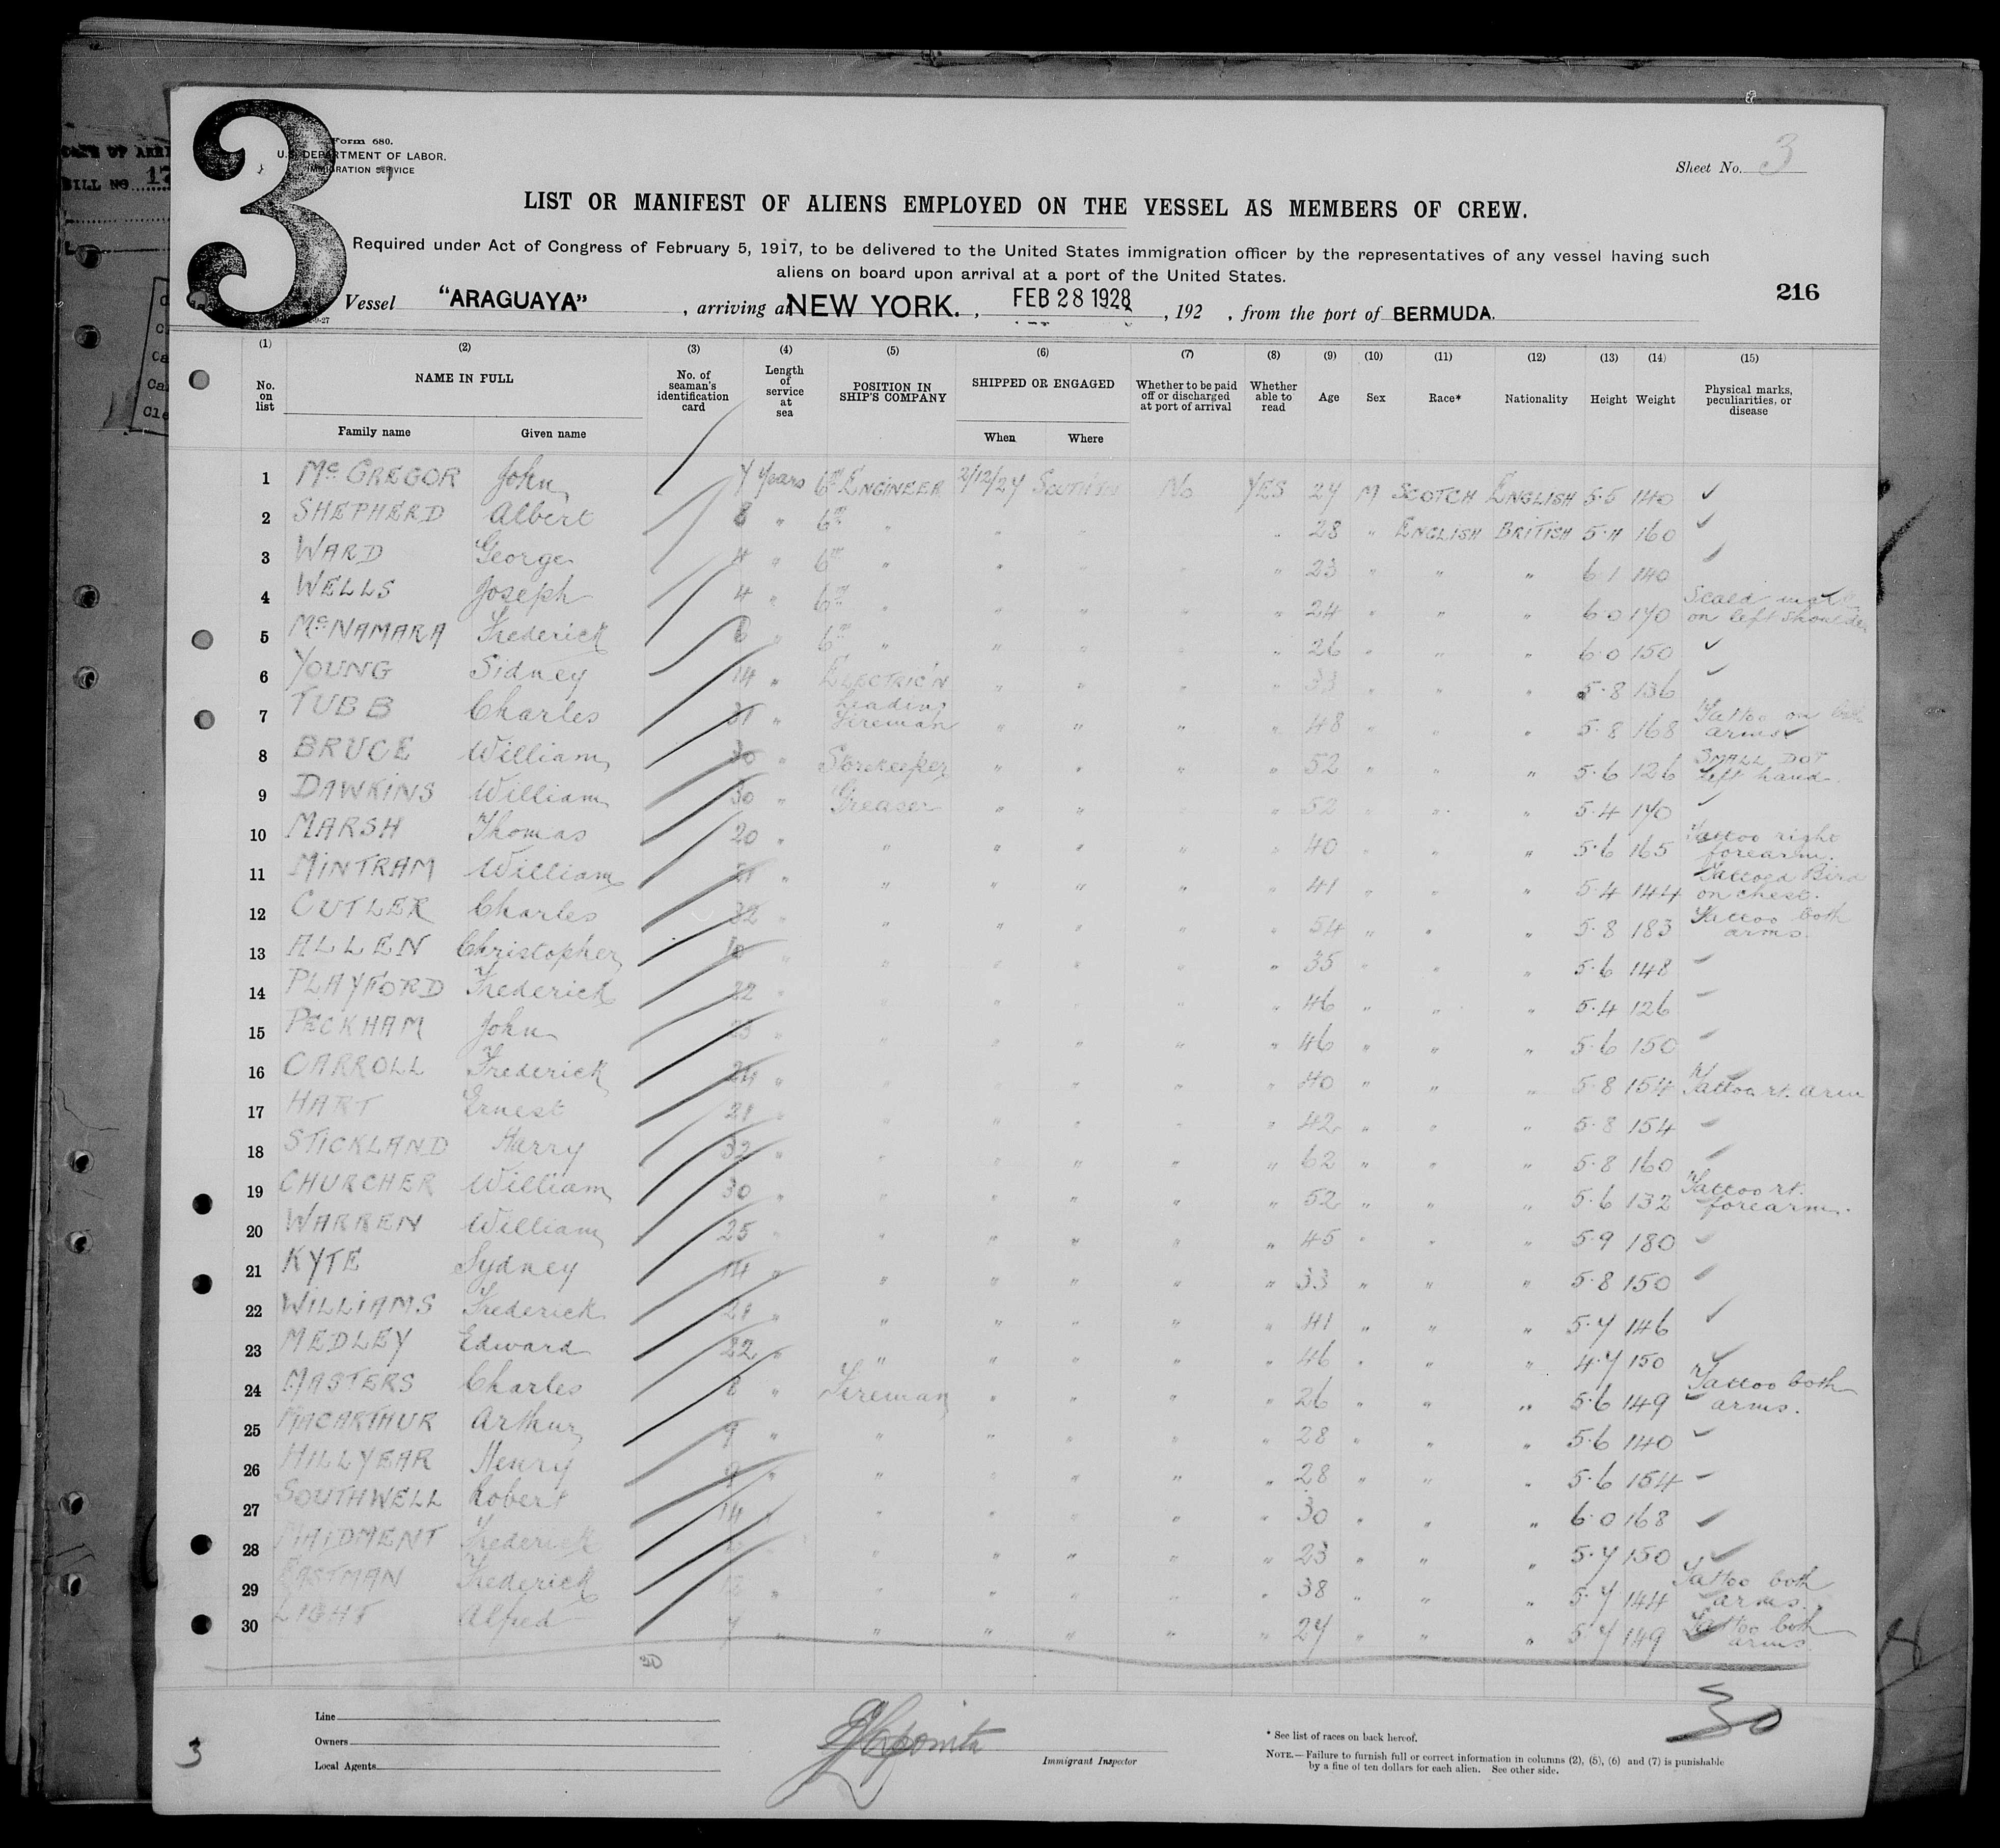 3
Form 680.
U.S. DEPARTMENT OF LABOR.
IMMIGRATION SERVICE
Sheet No. 3
LIST OR MANIFEST OF ALIENS EMPLOYED ON THE VESSEL AS MEMBERS OF CREW.
Required under Act of Congress of February 5, 1917, to be delivered to the United States immigration officer by the representatives of any vessel having such
aliens on board upon arrival at a port of the United States.
216
Vessel "ARAGUAYA", arriving at NEW YORK., FEB 28 1928, 192 , from the port of BERMUDA.
(1) (2) (3) (4) (5) (6) (7) (8) (9) (10) (11) (12) (13) (14) (15)
No. on list NAME IN FULL No. of seaman's identification card Length of service at sea POSITION IN SHIP'S COMPANY SHIPPED OR ENGAGED Whether to be paid off or discharged at port of arrival Whether able to read Age Sex Race* Nationality Height Weight Physical marks, peculiarities, or disease
Family name Given name When Where
1 McGREGOR John 7 years 6th ENGINEER 2/12/27 No YES 27 M SCOTCH ENGLISH 5.5 140 ✓
2 SHEPHERD Albert 8 " 6th " " " " 28 " ENGLISH BRITISH 5.11 160 ✓
3 WARD George 4 " 6th " " " " 23 " " " 6.1 140 ✓
4 WELLS Joseph 4 " 6th " " " " " 24 " " " 6.0 170 Scald mark on left shoulder
5 McNAMARA Frederick 6 " 6th " " " " " 26 " " " 6.0 150 ✓
6 YOUNG Sidney 14 " ELECTRIC'N " " " " 33 " " " 5.8 136 ✓
7 TUBB Charles 31 " Leading Fireman " " " " 48 " " " 5.8 168 Tattoo on both arms ✓
8 BRUCE William 30 " Storekeeper " " " " 52 " " " 5.6 126 SMALL DOT left hand.
9 DAWKINS William 30 " Greaser " " " 52 " " " 5.4 170 ✓
10 MARSH Thomas 20 " " " " " " 40 " " " 5.6 165 Tattoo right forearm.
11 MINTRAM William 21 " " " " " " 41 " " " 5.4 144 Tattoed Bird on chest.
12 CUTLER Charles 32 " " " " " " 54 " " " 5.8 183 Tattoo both arms.
13 ALLEN Christopher 10 " " " " " " 35 " " " 5.6 148 ✓
14 PLAYFORD Frederick 22 " " " " " " 46 " " " 5.4 126 ✓
15 PECKHAM John 23 " " " " " " 46 " " " 5.6 150 ✓
16 CARROLL Frederick 24 " " " " " " 40 " " " 5.8 154 Tattoo rt. arm
17 HART Ernest 21 " " " " " " 42 " " " 5.8 154 ✓
18 STICKLAND Harry 32 " " " " " " 62 " " " 5.8 160 ✓
19 CHURCHER William 30 " " " " " " 52 " " " 5.6 132 Tattoo rt. forearm.
20 WARREN William 25 " " " " " " 45 " " " 5.9 180 ✓
21 KYTE Sydney 14 " " " " " " 33 " " " 5.8 150 ✓
22 WILLIAMS Frederick 21 " " " " " " 41 " " " 5.7 146 ✓
23 MEDLEY Edward 22 " " " " " " 46 " " " 4.7 150 ✓
24 MASTERS Charles 8 " Fireman " " " " 26 " " " 5.6 149 Tattoo both arms.
25 MACARTHUR Arthur 9 " " " " " " 28 " " " 5.6 140 ✓
26 HILLYEAR Henry 9 " " " " " " 28 " " " 5.6 154 –
27 SOUTHWELL Robert 14 " " " " " " 30 " " " 6.0 168 ✓
28 MAIDMENT Frederick " " " " " " 23 " " " 5.7 150 ✓
29 EASTMAN Frederick 12 " " " " " " 38 " " " 5.7 144 Tattoo both arms.
30 LIGHT Alfred 7 " " " " " " 27 " " " 5.7 149 Tattoo both arms
30
30
Line
Owners
Local Agents
Immigrant Inspector
* See list of races on back hereof.
NOTE.—Failure to furnish full or correct information in columns (2), (5), (6) and (7) is punishable
by a fine of ten dollars for each alien. See other side.
3